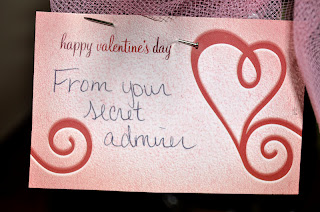 happy valentine's day
From your
secret
admirer